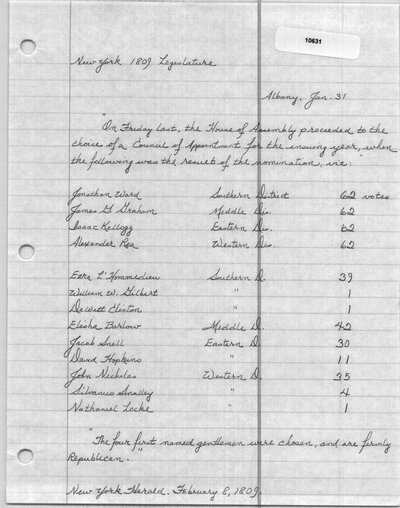 10631
New York 1809 Legislature
Albany, Jan. 31
"On Friday last, the House of Assembly proceeded to the
choice of a Council of Appointment for the ensuing year, when
the following was the result of the nomination, viz:"
Jonathan Ward Southern District 62 votes
James G. Graham Middle Dis. 62
Isaac Kellogg Eastern Dis. 62
Alexander Rea Western Dis. 62
Ezra L'Hommedieu Southern D. 39
William W. Gilbert " 1
DeWitt Clinton " 1
Elisha Barlow Middle D. 42
Jacob Snell Eastern D. 30
David Hopkins " 11
John Nicholas Western D. 35
Silvanus Smalley " 4
Nathaniel Locke " 1
"The four first named gentlemen were chosen, and are firmly
Republican."
New York Herald. February 8, 1809.